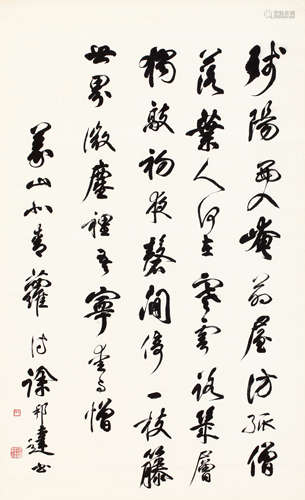 殘陽西入崦茆屋訪孤僧
落葉人何在寒雲路幾層
獨敲初夜磬閒倚一枝籐
世界微塵裡吾寧愛與憎
義山北青蘿詩徐邦達書